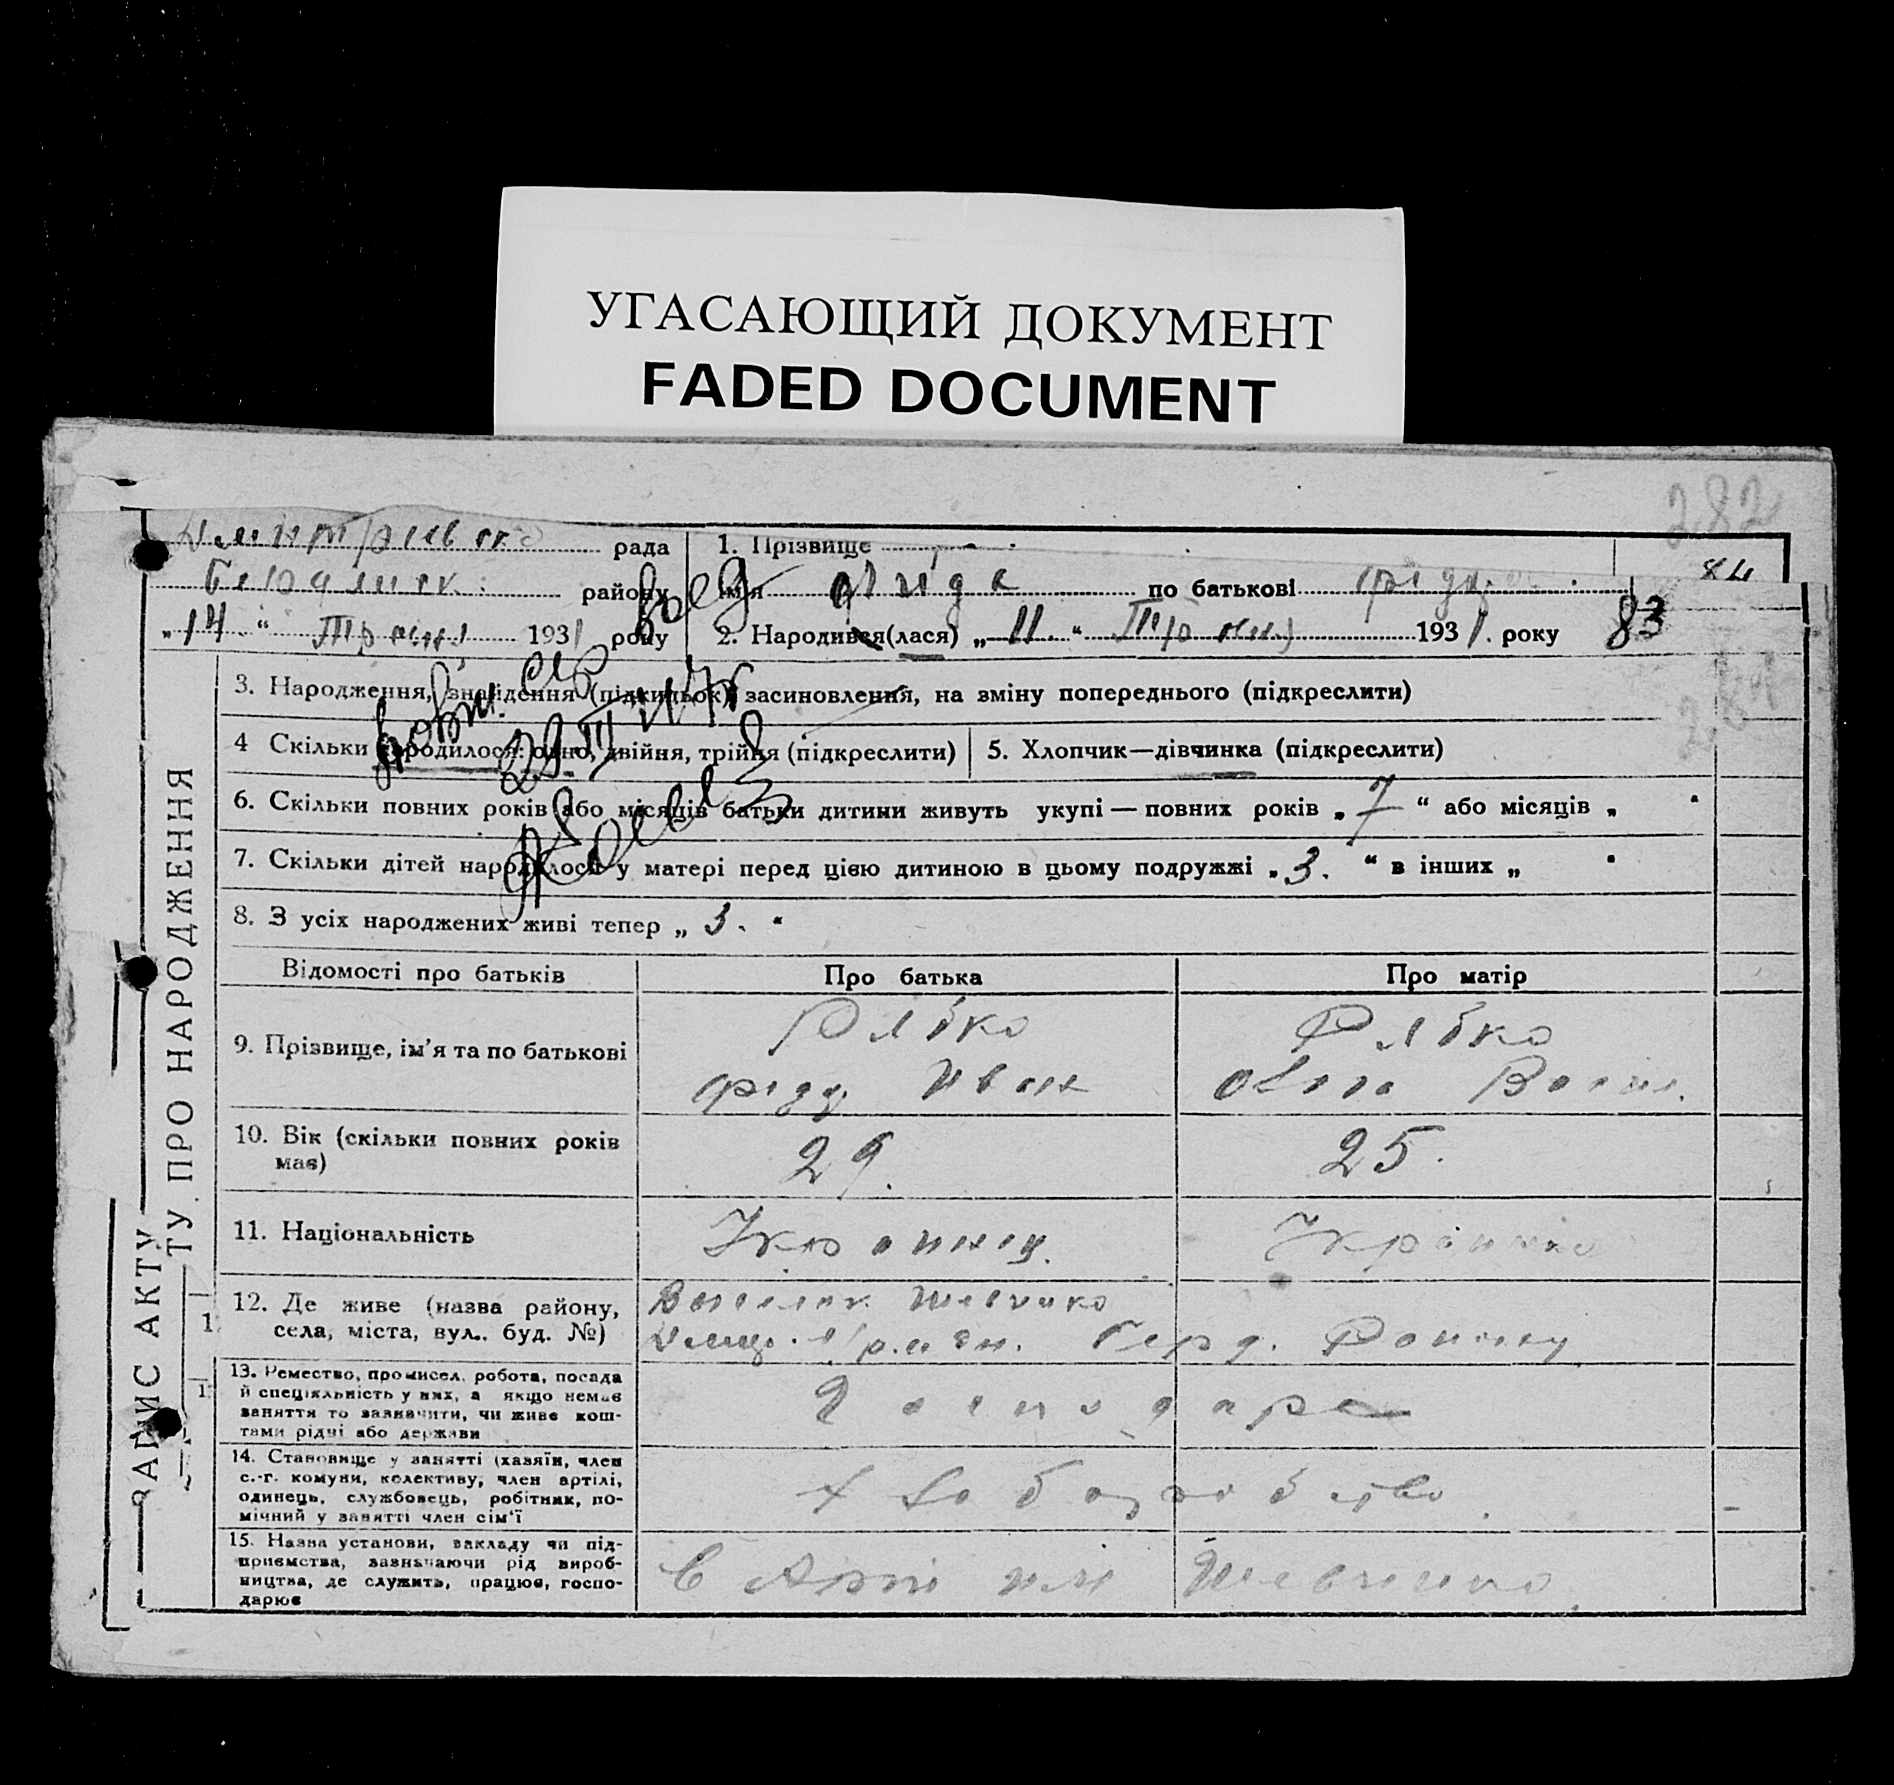 УГАСАЮЩИЙ ДОКУМЕНТ
FADED DOCUMENT
282
рада
1. Прізвище
84
району
ім'я Лида по батькові
„14“ Травня 1931 року
2. Народився(лася) „11.“ Травня 1931. року
83
3. Народження, знайдення (підкидьок), засиновлення, на зміну попереднього (підкреслити)
281
4 Скільки народилося: одно, двійня, трійня (підкреслити)
5. Хлопчик—дівчинка (підкреслити)
6. Скільки повних років або місяців батьки дитини живуть укупі — повних років „7“ або місяців „
7. Скільки дітей народилося у матері перед цією дитиною в цьому подружжі „3.“ в інших „
8. З усіх народжених живі тепер „3.“
ЗАПИС АКТУ
ТУ ПРО НАРОДЖЕННЯ
Відомості про батьків
Про батька
Про матір
9. Прізвище, ім'я та по батькові
Рябко
Рябко
Іван
10. Вік (скільки повних років має)
29.
25.
11. Національність
Українец.
Українка
12. Де живе (назва району, села, міста, вул. буд. №)
Шевченко
Району
13. Ремество, промисел, робота, посада й спеціяльність у них, а якщо немає заняття то зазначити, чи живе коштами рідні або держави
Господарь
14. Становище у занятті (хазяїн, член с.-г. комуни, колективу, член артілі, одинець, службовець, робітник, помічний у занятті член сім'ї
Хлоборобство
15. Назва установи, закладу чи підприємства, зазначаючи рід виробництва, де служить, працює, господарює
Шевченко